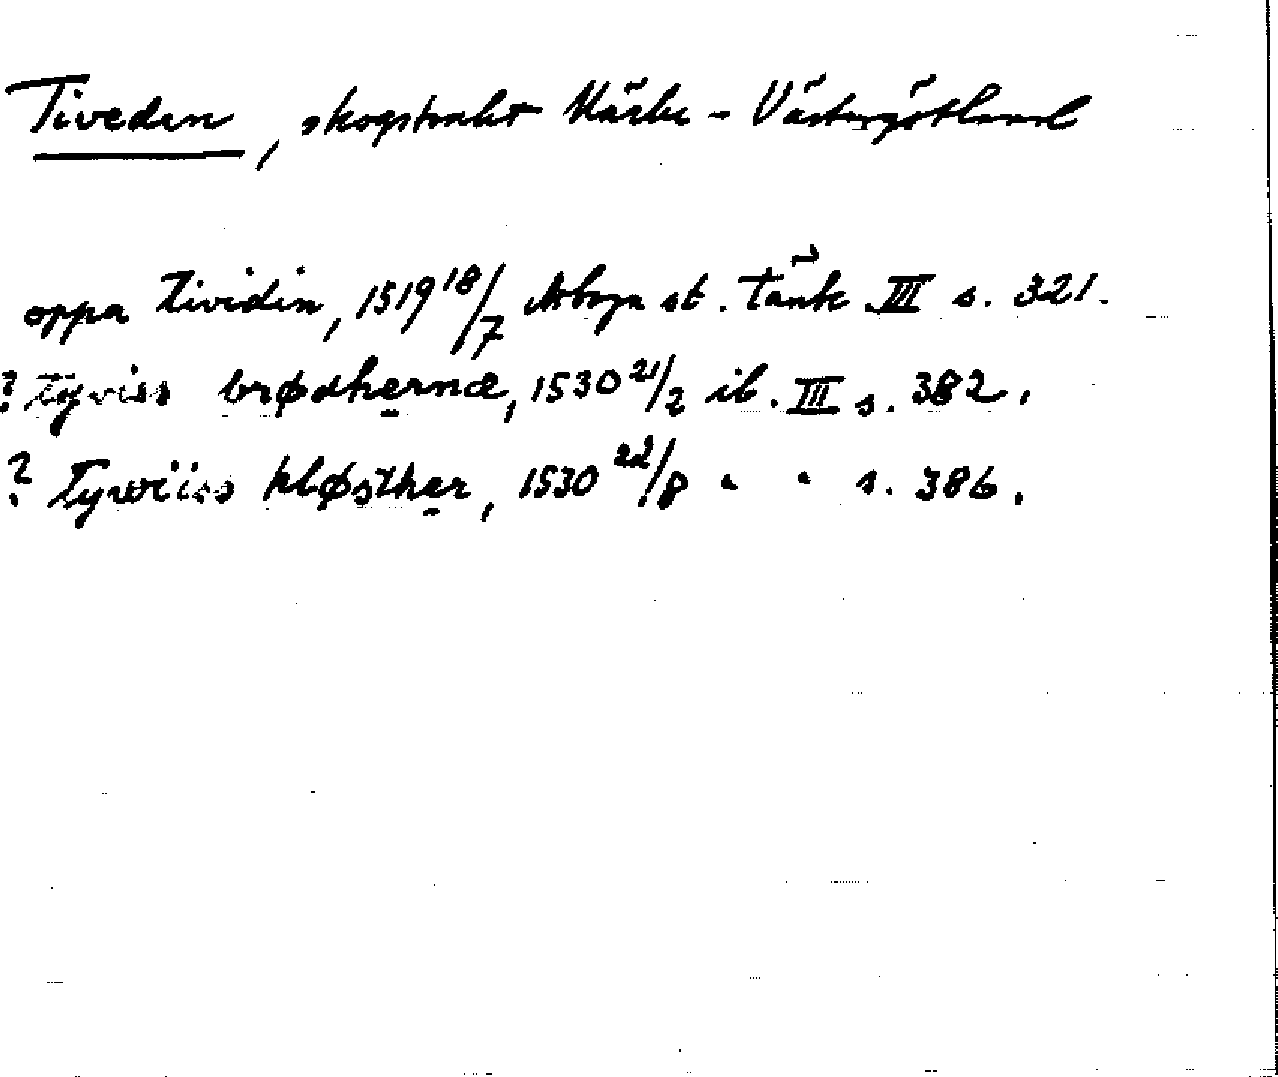 Tiveden, skogstrakt Närke - Västergötland
oppa Tividin, 1519 18/7 Arboga st. tänk. III s. 321.
? Tyviss brødhernæ, 1530 21/2 ib. III s. 382.
? Tywiiss kløsther, 1530 22/8 " " s. 386.